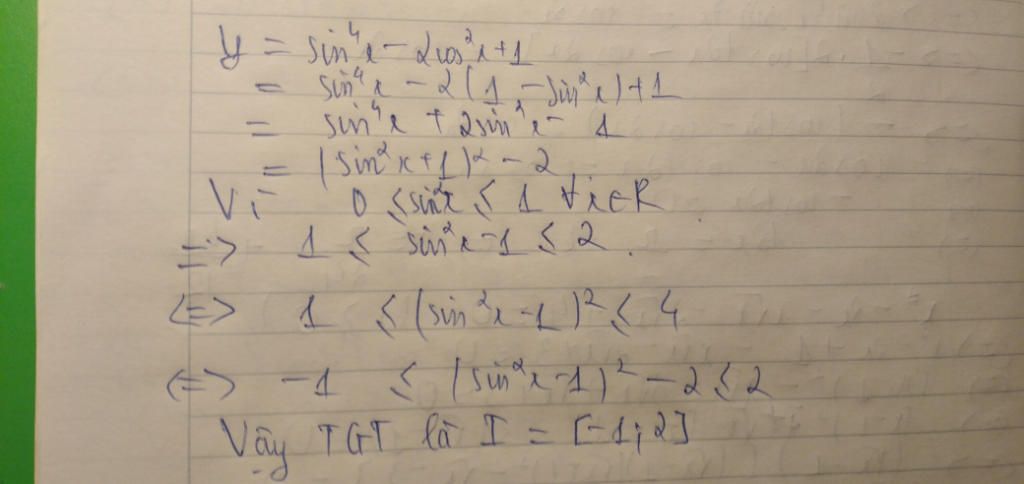 y = sin⁴x - 2cos²x + 1
= sin⁴x - 2(1 - sin²x) + 1
= sin⁴x + 2sin²x - 1
= (sin²x + 1)² - 2
Vì 0 ≤ sin²x ≤ 1 ∀x∈R
=> 1 ≤ sin²x - 1 ≤ 2.
<=> 1 ≤ (sin²x - 1)² ≤ 4
<=> -1 ≤ (sin²x - 1)² - 2 ≤ 2
Vậy TGT là I = [-1; 2]